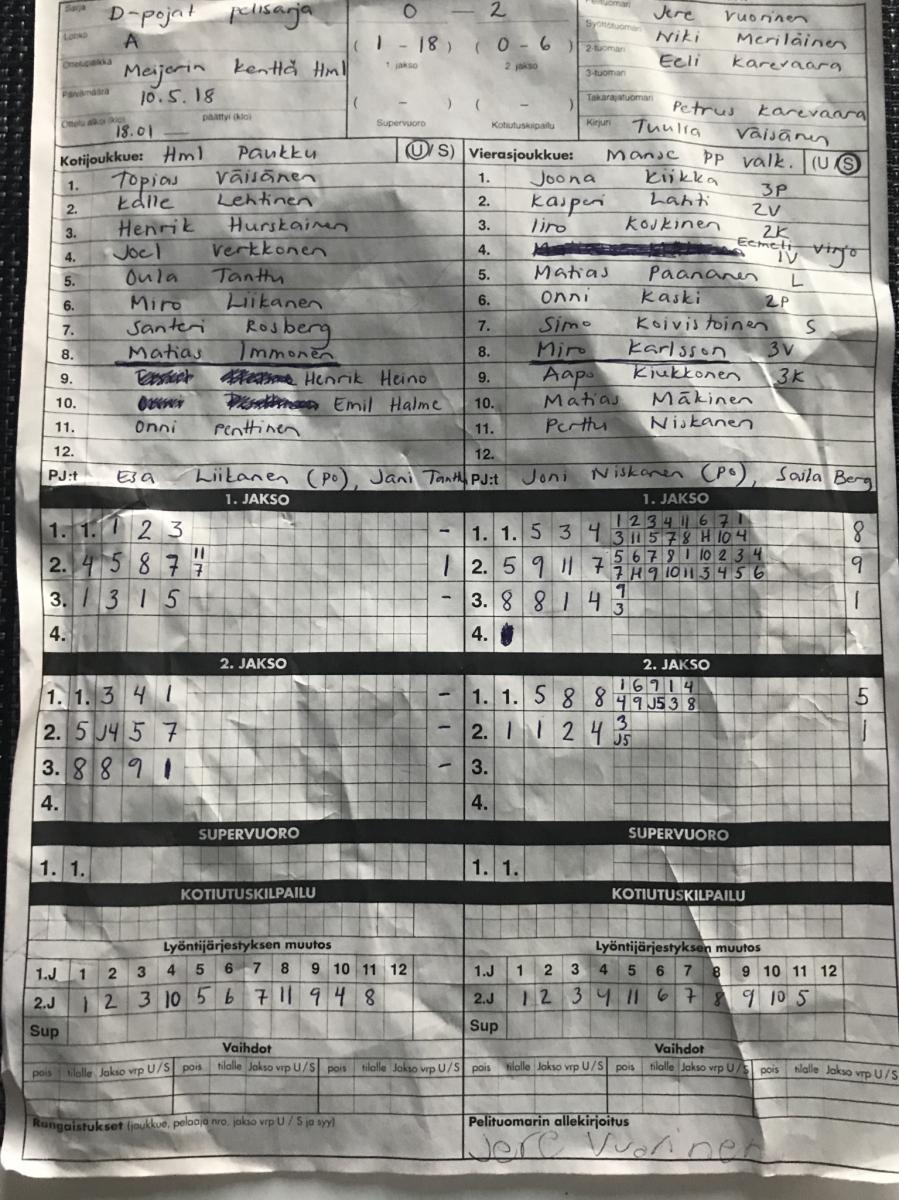 Sarja D-pojat pelisarja
Lohko A
Ottelupaikka Meijerin kenttä Hml
Päivämäärä 10.5.18
Ottelu alkoi (klo) 18.01 — päättyi (klo)
0 — 2
( 1 - 18 ) ( 0 - 6 )
1. jakso 2. jakso
( - ) ( - )
Supervuoro Kotiutuskilpailu
Pelituomari Jere Vuorinen
Syöttötuomari Niki Meriläinen
2-tuomari Eeli Karevaara
3-tuomari
Takarajatuomari Petrus Karevaara
Kirjuri Tuulia Väisänen
Kotijoukkue: Hml Paukku (U/S)
1. Topias Väisänen
2. Kalle Lehtinen
3. Henrik Hurskainen
4. Joel Verkkonen
5. Oula Tanttu
6. Miro Liikanen
7. Santeri Rosberg
8. Matias Immonen
9. Henrik Heino
10. Emil Halme
11. Onni Penttinen
12.
PJ:t Esa Liikanen (PO), Jani Tanttu
Vierasjoukkue: Manse PP valk. (U/S)
1. Joona Kiikka 3P
2. Kasperi Lahti 2V
3. Iiro Koskinen 2K
4. Eemeli Virjo 1V
5. Matias Paananen L
6. Onni Kaski 2P
7. Simo Koivistoinen S
8. Miro Karlsson 3V
9. Aapo Kiukkonen 3K
10. Matias Mäkinen
11. Perttu Niskanen
12.
PJ:t Joni Niskanen (PO), Saila Berg
1. JAKSO
1. 1. 1 2 3 -
2. 4 5 8 7 11 1
7
3. 1 3 1 5 -
4.
1. JAKSO
1. 1. 5 3 4 1 2 3 4 11 6 7 1 8
3 11 5 7 8 H 10 4
2. 5 9 11 7 5 6 7 8 1 10 2 3 4 9
7 H 9 10 11 3 4 5 6
3. 8 8 1 4 9 1
3
4.
2. JAKSO
1. 1. 3 4 1 -
2. 5 J4 5 7 -
3. 8 8 9 1 -
4.
2. JAKSO
1. 1. 5 8 8 1 6 9 1 4 5
4 9 J5 3 8
2. 1 1 2 4 3 1
J5
3.
4.
SUPERVUORO
1. 1.
SUPERVUORO
1. 1.
KOTIUTUSKILPAILU
KOTIUTUSKILPAILU
Lyöntijärjestyksen muutos
1.J 1 2 3 4 5 6 7 8 9 10 11 12
2.J 1 2 3 10 5 6 7 11 9 4 8
Sup
Lyöntijärjestyksen muutos
1.J 1 2 3 4 5 6 7 8 9 10 11 12
2.J 1 2 3 4 11 6 7 8 9 10 5
Sup
Vaihdot
pois tilalle Jakso vrp U/S pois tilalle Jakso vrp U/S pois tilalle Jakso vrp U/S
Vaihdot
pois tilalle Jakso vrp U/S pois tilalle Jakso vrp U/S pois tilalle Jakso vrp U/S
Rangaistukset (joukkue, pelaaja nro, jakso vrp U / S ja syy)
Pelituomarin allekirjoitus
Jere Vuorinen